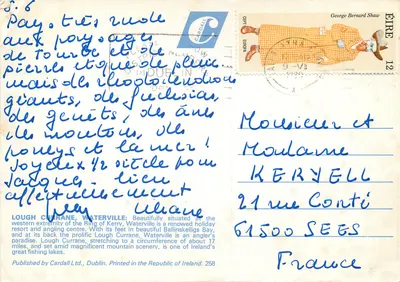 5.6
Pays très rude
aux paysages
de tourbe et de
pierres et que de pluie
mais des rhododendrons
géants, des fuchsias,
des genêts, des ânes
des moutons, des
poneys et la mer!
Joyeux 1/2 siècle pour
Jacques. bien
affectueusement
Liliane
LOUGH CURRANE, WATERVILLE: Beautifully situated on the
western extremity of the Ring of Kerry, Waterville is a renowned holiday
resort and angling centre. With its feet in beautiful Ballinskelligs Bay,
and at its back the prolific Lough Currane, Waterville is an angler's
paradise. Lough Currane, stretching to a circumference of about 17
miles, and set amid magnificent mountain scenery, is one of Ireland's
great fishing lakes.
Published by Cardall Ltd., Dublin. Printed in the Republic of Ireland. 258
George Bernard Shaw
ÉIRE
12
Monsieur et
Madame
KERVELL
21 rue Conté
61500 SEES
France